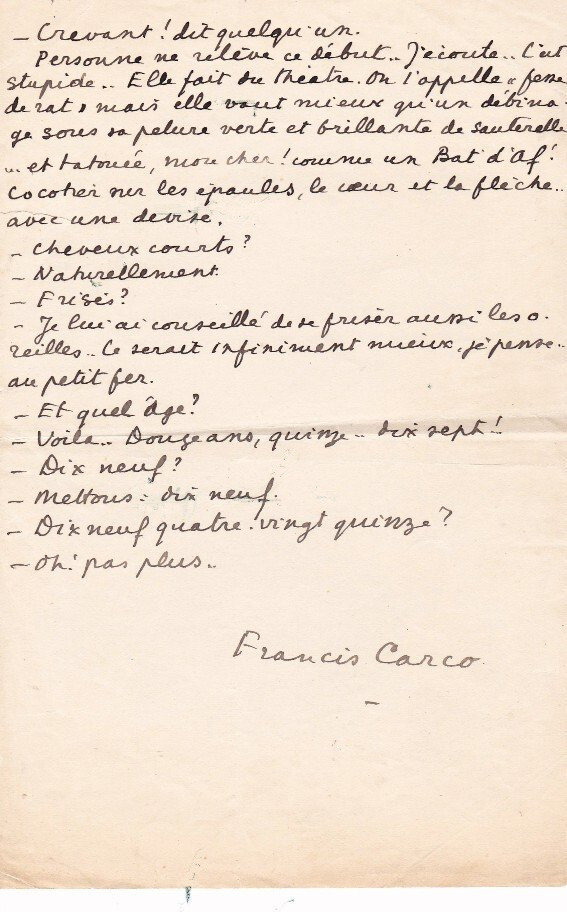 - Crevant ! dit quelqu'un.
Personne ne relève ce début.. J'écoute.. C'est
stupide.. Elle fait du théatre. On l'appella "fesse
de rat" mais elle vaut mieux qu'un débina-
ge sous sa pelure verte et brillante de sauterelle
... et tatouée, mon cher ! comme un Bat d'Af !
Cocotier sur les épaules, le cœur et la flèche..
avec une devise.
- Cheveux courts ?
- Naturellement
- Frisés ?
- Je lui ai conseillé de se friser aussi les o-
reilles.. Ce serait infiniment mieux, je pense..
au petit fer.
- Et quel âge ?
- Voilà.. Douze ans, quinze.. dix sept !
- Dix neuf ?
- Mettons : dix neuf.
- Dix neuf quatre-vingt quinze ?
- Oh ! pas plus..
Francis Carco